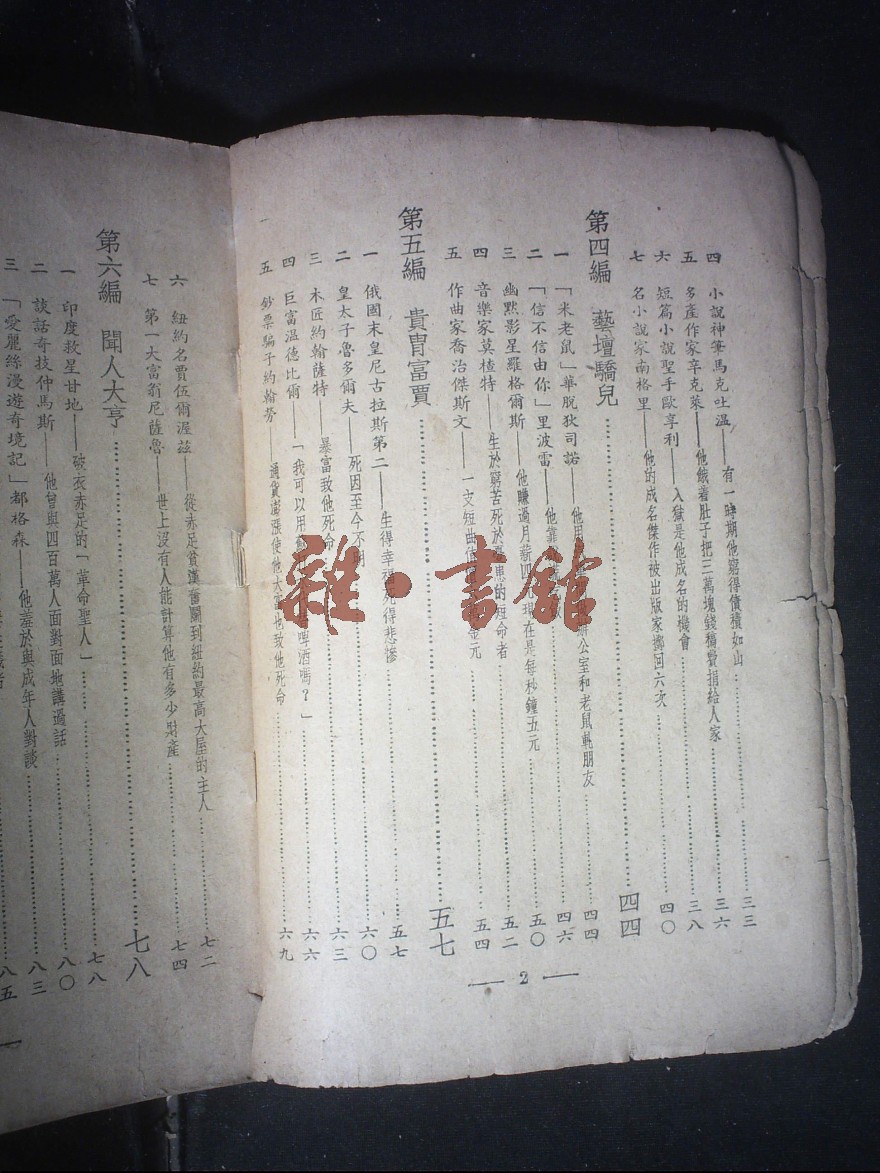 四 小說神筆馬克吐溫——有一時期他窮得債積如山……三三
五 多產作家辛克萊——他餓着肚子把三萬塊錢稿費捐給人家……三六
六 短篇小說聖手歐享利——入獄是他成名的機會……三八
七 名小說家南格里——他的成名傑作被出版家擲回六次……四〇
第四編 藝壇驕兒……四四
一 「米老鼠」華脫狄司諾——他用 辦公室和老鼠軋朋友……四四
二 「信不信由你」里波雷——他靠……四六
三 幽默影星羅格爾斯——他賺過月薪四 現在是每秒鐘五元……五〇
四 音樂家莫楂特——生於窮苦死於 患的短命者……五二
五 作曲家喬治傑斯文——一支短曲值 金元……五四
第五編 貴胄富賈……五七
一 俄國末皇尼古拉斯第二——生得幸福死得悲慘……五七
二 皇太子魯多爾夫——死因至今不明……六〇
三 木匠約翰薩特——暴富致他死命……六三
四 巨富温德比爾——「我可以用 啤酒嗎？」……六六
五 鈔票騙子約翰勞——通貨澎漲使他大富也致他死命……六九
— 2 —
六 紐約名賈伍爾渥茲——從赤足貧漢奮鬭到紐約最高大屋的主人……七二
七 第一大富翁尼薩魯——世上沒有人能計算他有多少財產……七四
第六編 聞人大亨……七八
一 印度救星甘地——破衣赤足的「革命聖人」……七八
二 談話奇技仲馬斯——他曾與四百萬人面對面地講過話……八〇
三 「愛麗絲漫遊奇境記」都格森——他羞於與成年人對談……八三
八五
雜·書館